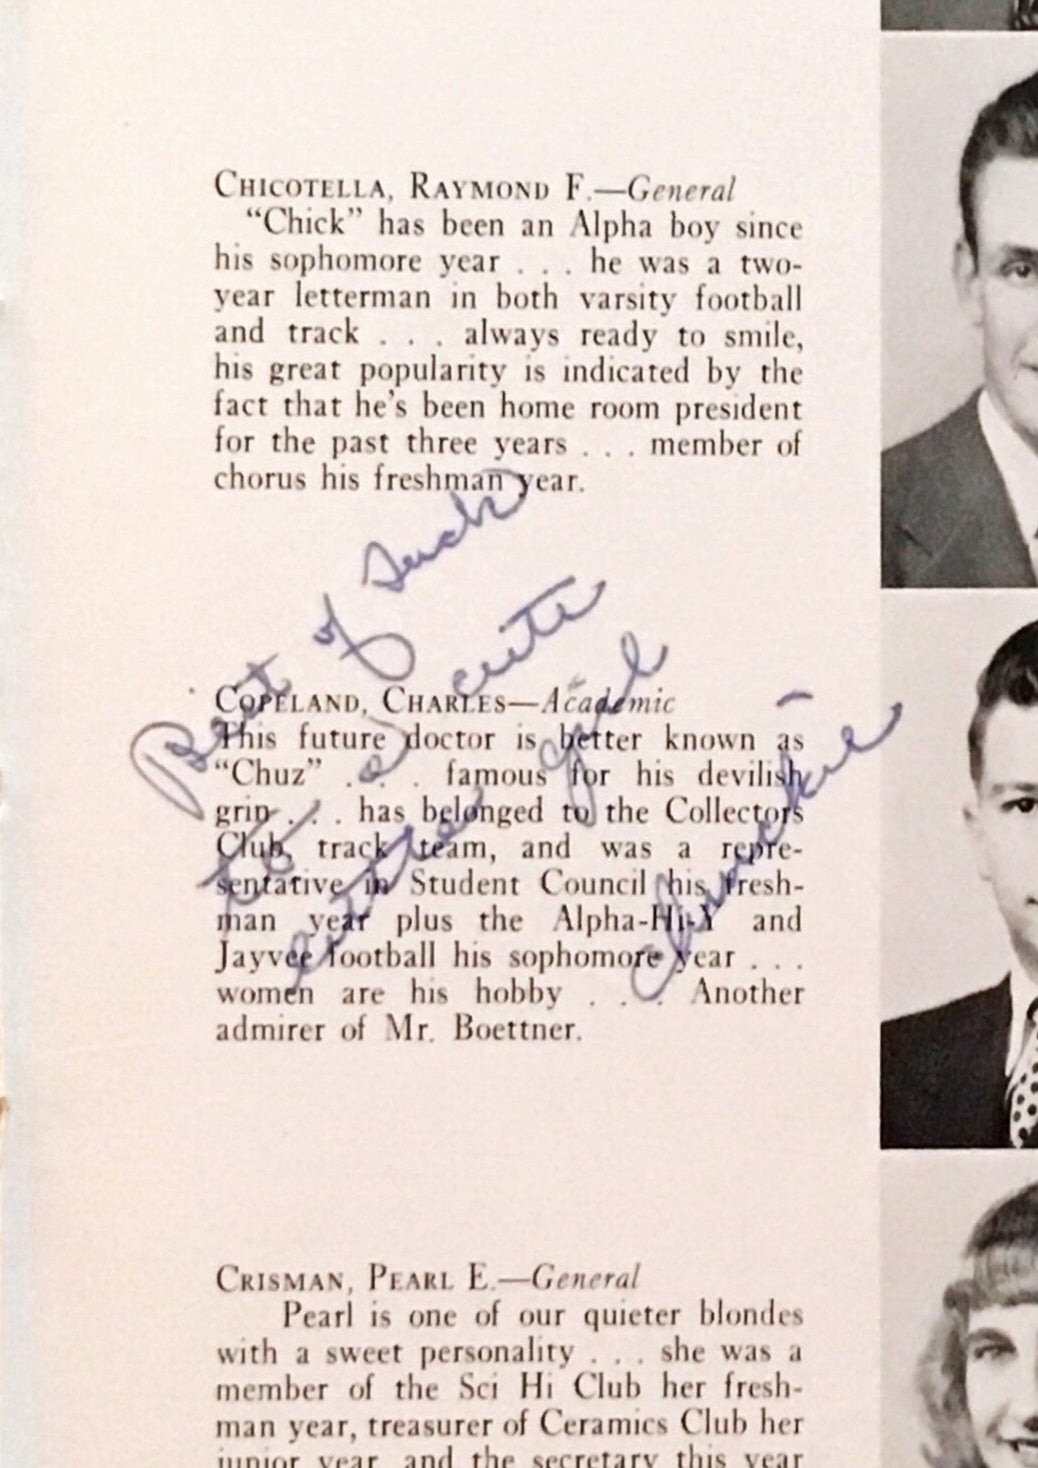 CHICOTELLA, RAYMOND F.—General
"Chick" has been an Alpha boy since
his sophomore year . . . he was a two-
year letterman in both varsity football
and track . . . always ready to smile,
his great popularity is indicated by the
fact that he's been home room president
for the past three years . . . member of
chorus his freshman year.
Best of luck
to a cute
little girl
Chuckie
COPELAND, CHARLES—Academic
This future doctor is better known as
"Chuz" . . . famous for his devilish
grin . . . has belonged to the Collectors
Club, track team, and was a repre-
sentative in Student Council his fresh-
man year plus the Alpha-Hi-Y and
Jayvee football his sophomore year . . .
women are his hobby . . . Another
admirer of Mr. Boettner.
CRISMAN, PEARL E.—General
Pearl is one of our quieter blondes
with a sweet personality . . . she was a
member of the Sci Hi Club her fresh-
man year, treasurer of Ceramics Club her
junior year, and the secretary this year